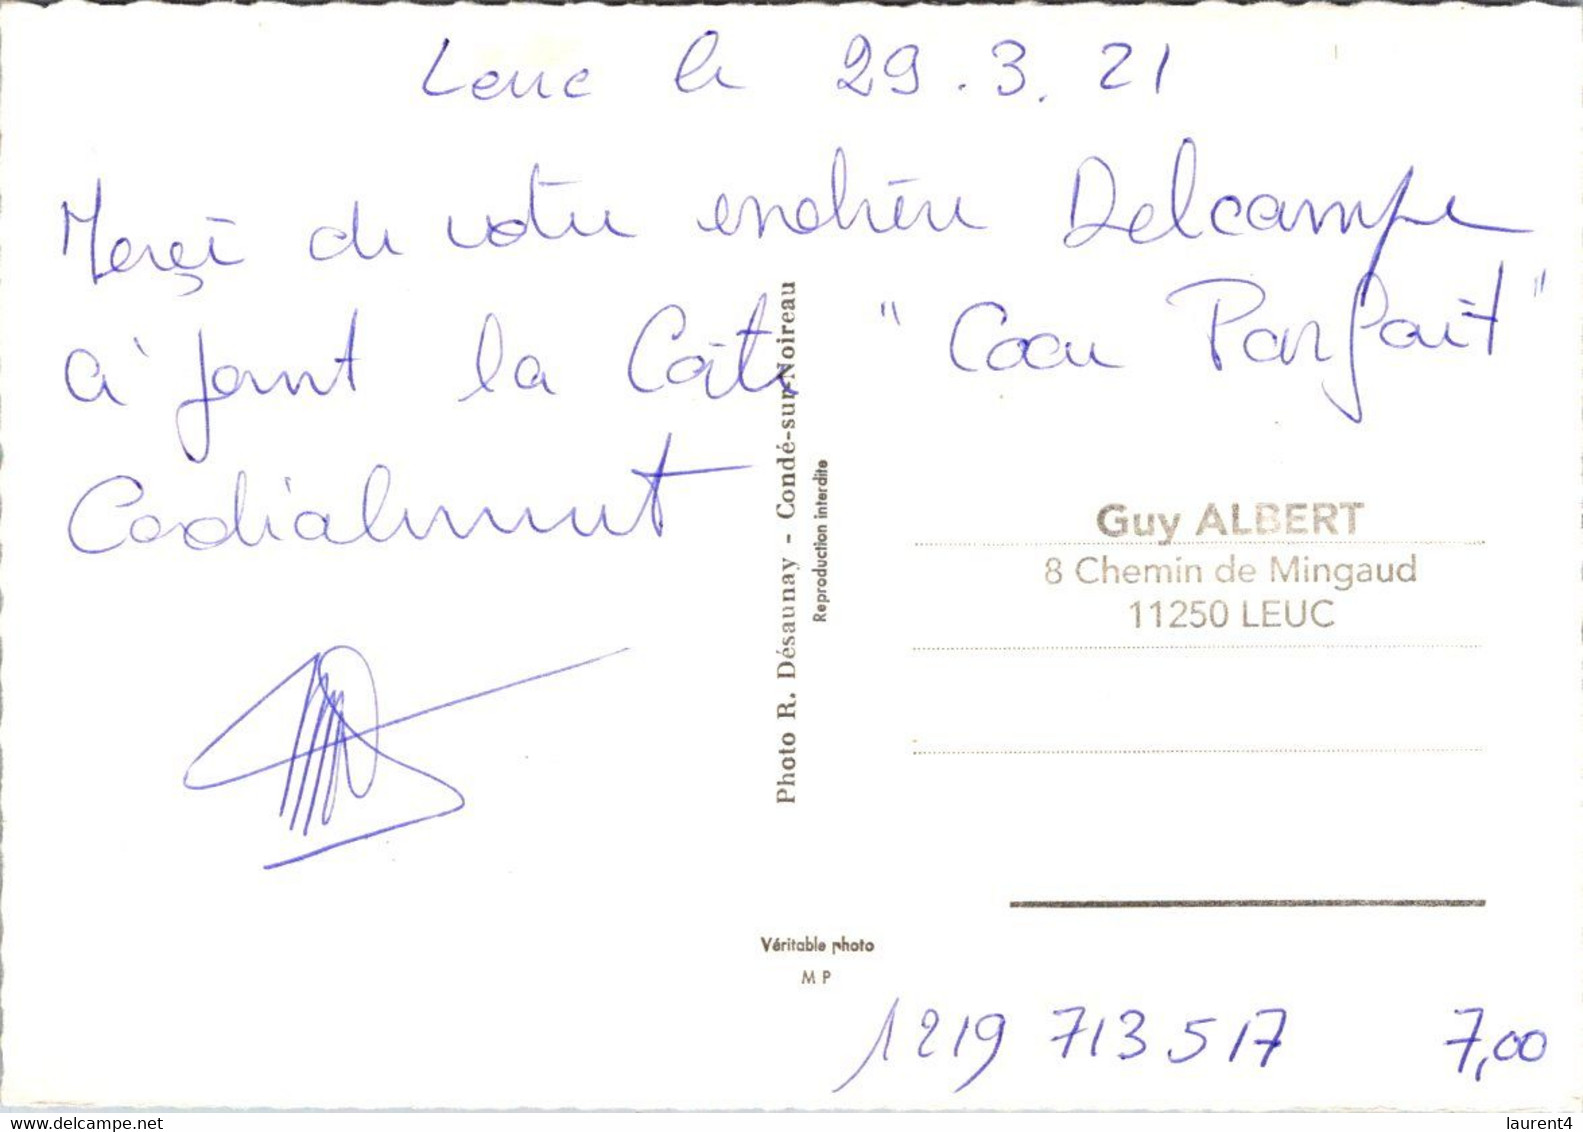 Leuc le 29.3.21
Merçi de votre enchère Delcampe
Ci joint la Carte "Coeur Parfait"
Cordialement
Photo R. Désaunay - Condé-sur-Noireau
Reproduction interdite
Guy ALBERT
8 Chemin de Mingaud
11250 LEUC
Véritable photo
M P
1219 713 517 7,00
www.delcampe.net
laurent4